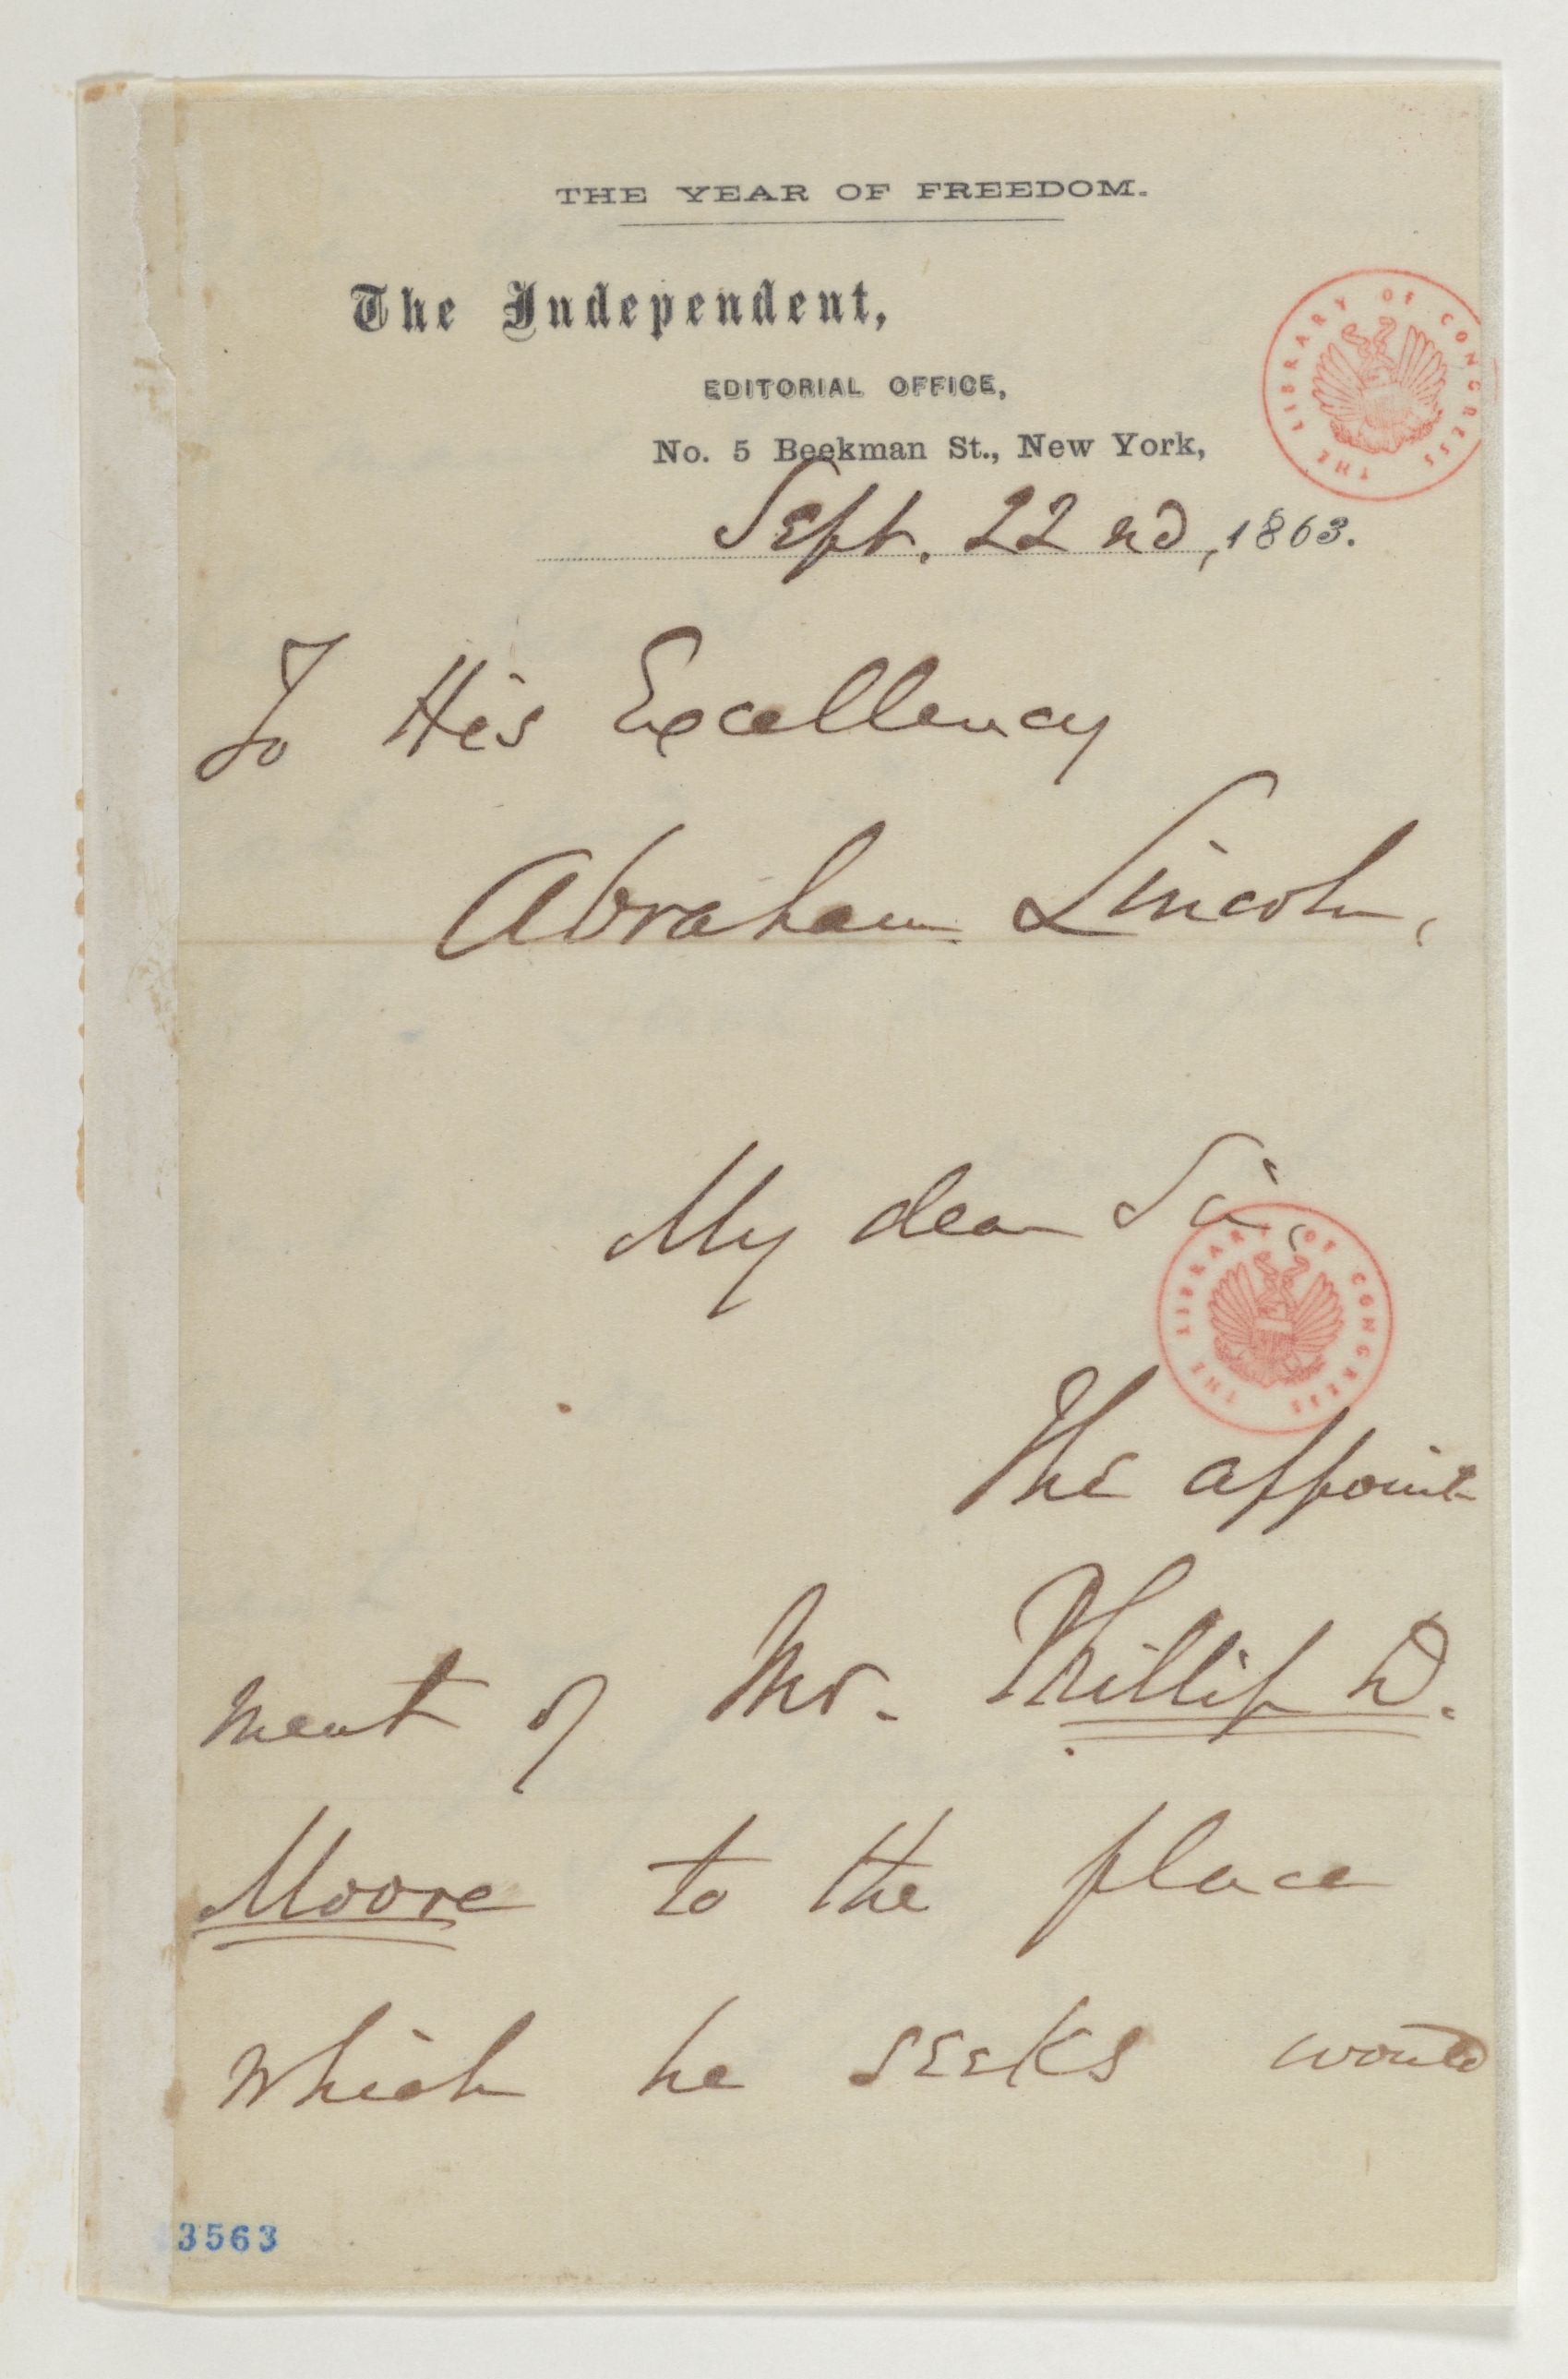 THE YEAR OF FREEDOM.
The Independent,
EDITORIAL OFFICE,
No. 5 Beekman St., New York,
Sept. 22nd, 1863.
THE LIBRARY OF CONGRESS
To His Excellency
Abraham Lincoln,
My dear Sir,
THE LIBRARY OF CONGRESS
The appoint
ment of Mr. Phillip D.
Moore to the place
which he seeks would
3563